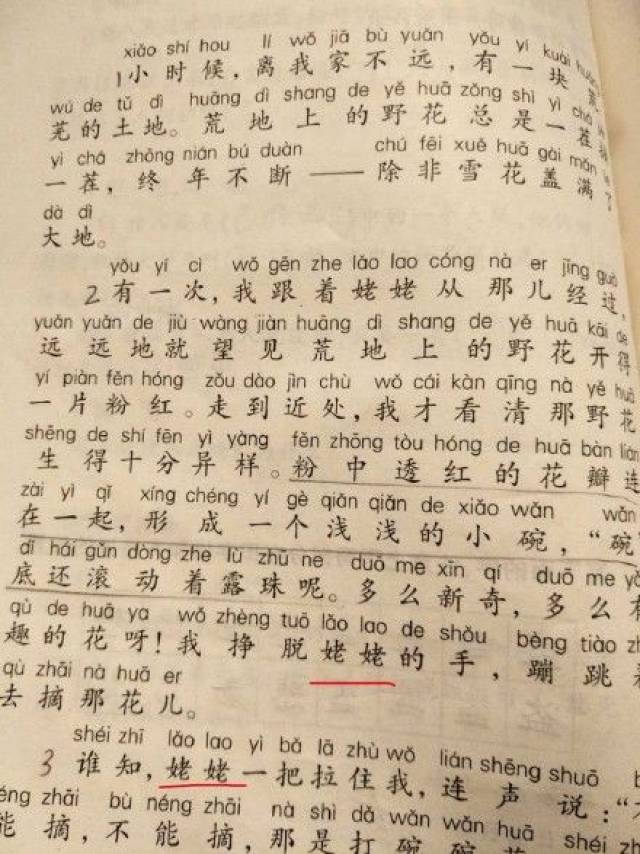 xiǎo shí hou lí wǒ jiā bù yuǎn yǒu yí kuài
1小时候，离我家不远，有一块荒
wú de tǔ dì huāng dì shang de yě huā zǒng shì yì chá
芜的土地。荒地上的野花总是一茬
yì chá zhōng nián bú duàn chú fēi xuě huā gài mǎn
一茬，终年不断——除非雪花盖满了
dà dì
大地。
yǒu yí cì wǒ gēn zhe lǎo lao cóng nà er jīng guò
2有一次，我跟着姥姥从那儿经过，
yuǎn yuǎn de jiù wàng jiàn huāng dì shang de yě huā kāi de
远远地就望见荒地上的野花开得
yí piàn fěn hóng zǒu dào jìn chù wǒ cái kàn qīng nà yě huā
一片粉红。走到近处，我才看清那野花
shēng de shí fēn yì yàng fěn zhōng tòu hóng de huā bàn lián
生得十分异样。粉中透红的花瓣连
zài yì qǐ xíng chéng yí gè qiǎn qiǎn de xiǎo wǎn wǎn
在一起，形成一个浅浅的小碗，“碗”
dǐ hái gǔn dòng zhe lù zhū ne duō me xīn qí duō me yǒ
底还滚动着露珠呢。多么新奇，多么有
qù de huā ya wǒ zhèng tuō lǎo lao de shǒu bèng tiào zh
趣的花呀！我挣脱姥姥的手，蹦跳着
qù zhāi nà huā er
去摘那花儿。
shéi zhī lǎo lao yì bǎ lā zhù wǒ lián shēng shuō b
3谁知，姥姥一把拉住我，连声说：“不
éng zhāi bù néng zhāi nà shì dǎ wǎn wǎn huā shéi z
能摘，不能摘，那是打碗碗花